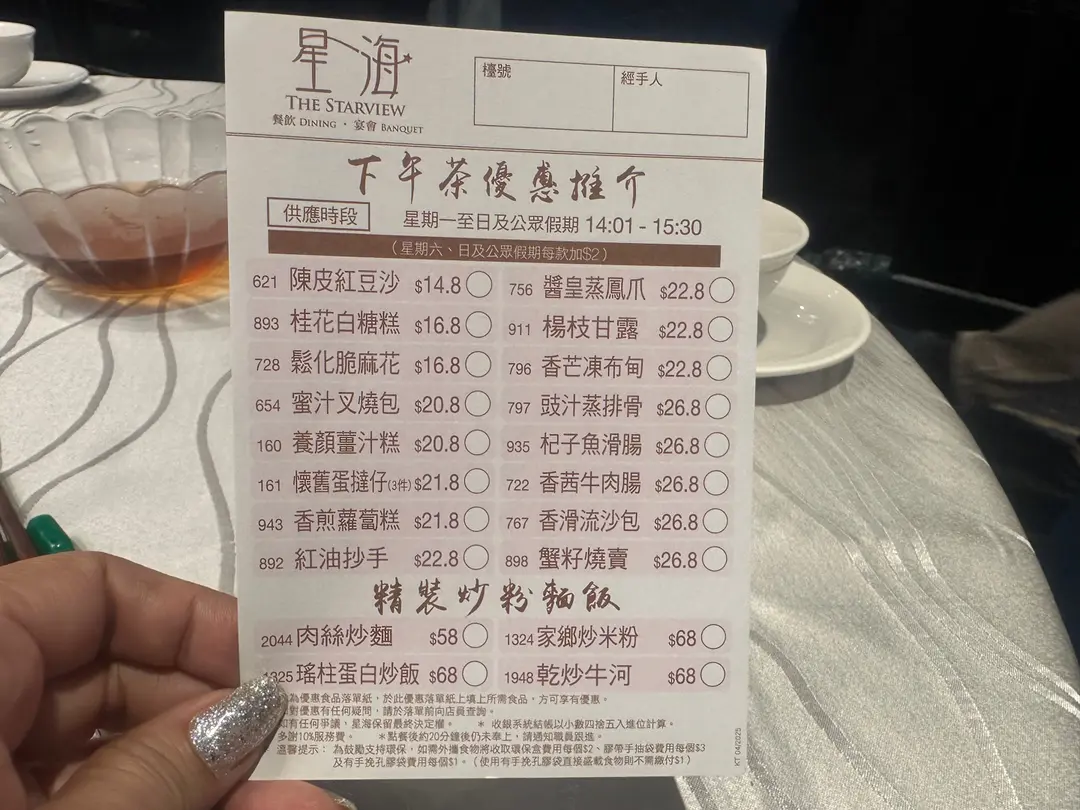 星海
THE STARVIEW
餐飲 DINING · 宴會 BANQUET
檯號
經手人
下午茶優惠推介
供應時段 星期一至日及公眾假期 14:01 - 15:30
(星期六、日及公眾假期每款加$2)
621 陳皮紅豆沙 $14.8
756 醬皇蒸鳳爪 $22.8
893 桂花白糖糕 $16.8
911 楊枝甘露 $22.8
728 鬆化脆麻花 $16.8
796 香芒凍布甸 $22.8
654 蜜汁叉燒包 $20.8
797 豉汁蒸排骨 $26.8
160 養顏薑汁糕 $20.8
935 杞子魚滑腸 $26.8
161 懷舊蛋撻仔(3件) $21.8
722 香茜牛肉腸 $26.8
943 香煎蘿蔔糕 $21.8
767 香滑流沙包 $26.8
892 紅油抄手 $22.8
898 蟹籽燒賣 $26.8
精裝炒粉麵飯
2044 肉絲炒麵 $58
1324 家鄉炒米粉 $68
1325 瑤柱蛋白炒飯 $68
1948 乾炒牛河 $68
為優惠食品落單紙，於此優惠落單紙上填上所需食品，方可享有優惠。
對優惠有任何疑問，請於落單前向店員查詢。
有任何爭議，星海保留最終決定權。 * 收銀系統結帳以小數四捨五入進位計算。
多謝10%服務費。 *點餐後約20分鐘後仍未奉上，請通知職員跟進。
溫馨提示： 為鼓勵支持環保，如需外攜食物將收取環保盒費用每個$2、膠帶手抽袋費用每個$3
及有手挽孔膠袋費用每個$1。（使用有手挽孔膠袋直接盛載食物則不需繳付$1）
KT 04/2025